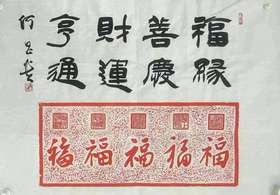 福緣
善慶
財運
亨通
福福福福福